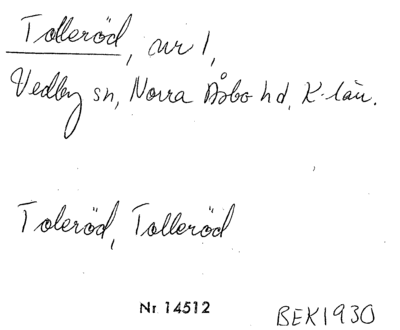 Tolleröd, nr 1,
Vedby sn, Norra Åsbo hd, K-län.
Toleröd, Tolleröd
Nr 14512
BEK1930